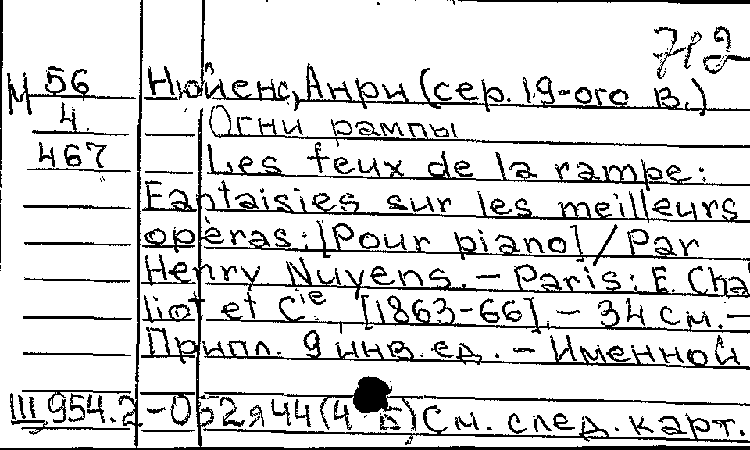 712
М 56 Нюйенс, Анри (сер. 19-ого в.)
4 Огни рампы
467 Les feux de la rampe:
Fantaisies sur les meilleurs
opèras: [Pour piano] / Par
Henry Nuyens. – Paris: E. Cha
liot et Cie, [1863-66]. – 34 см. –
Припл. 9 инв. ед. – Именной
III 954.2 – Об2я44(4 Б) См. след. карт.